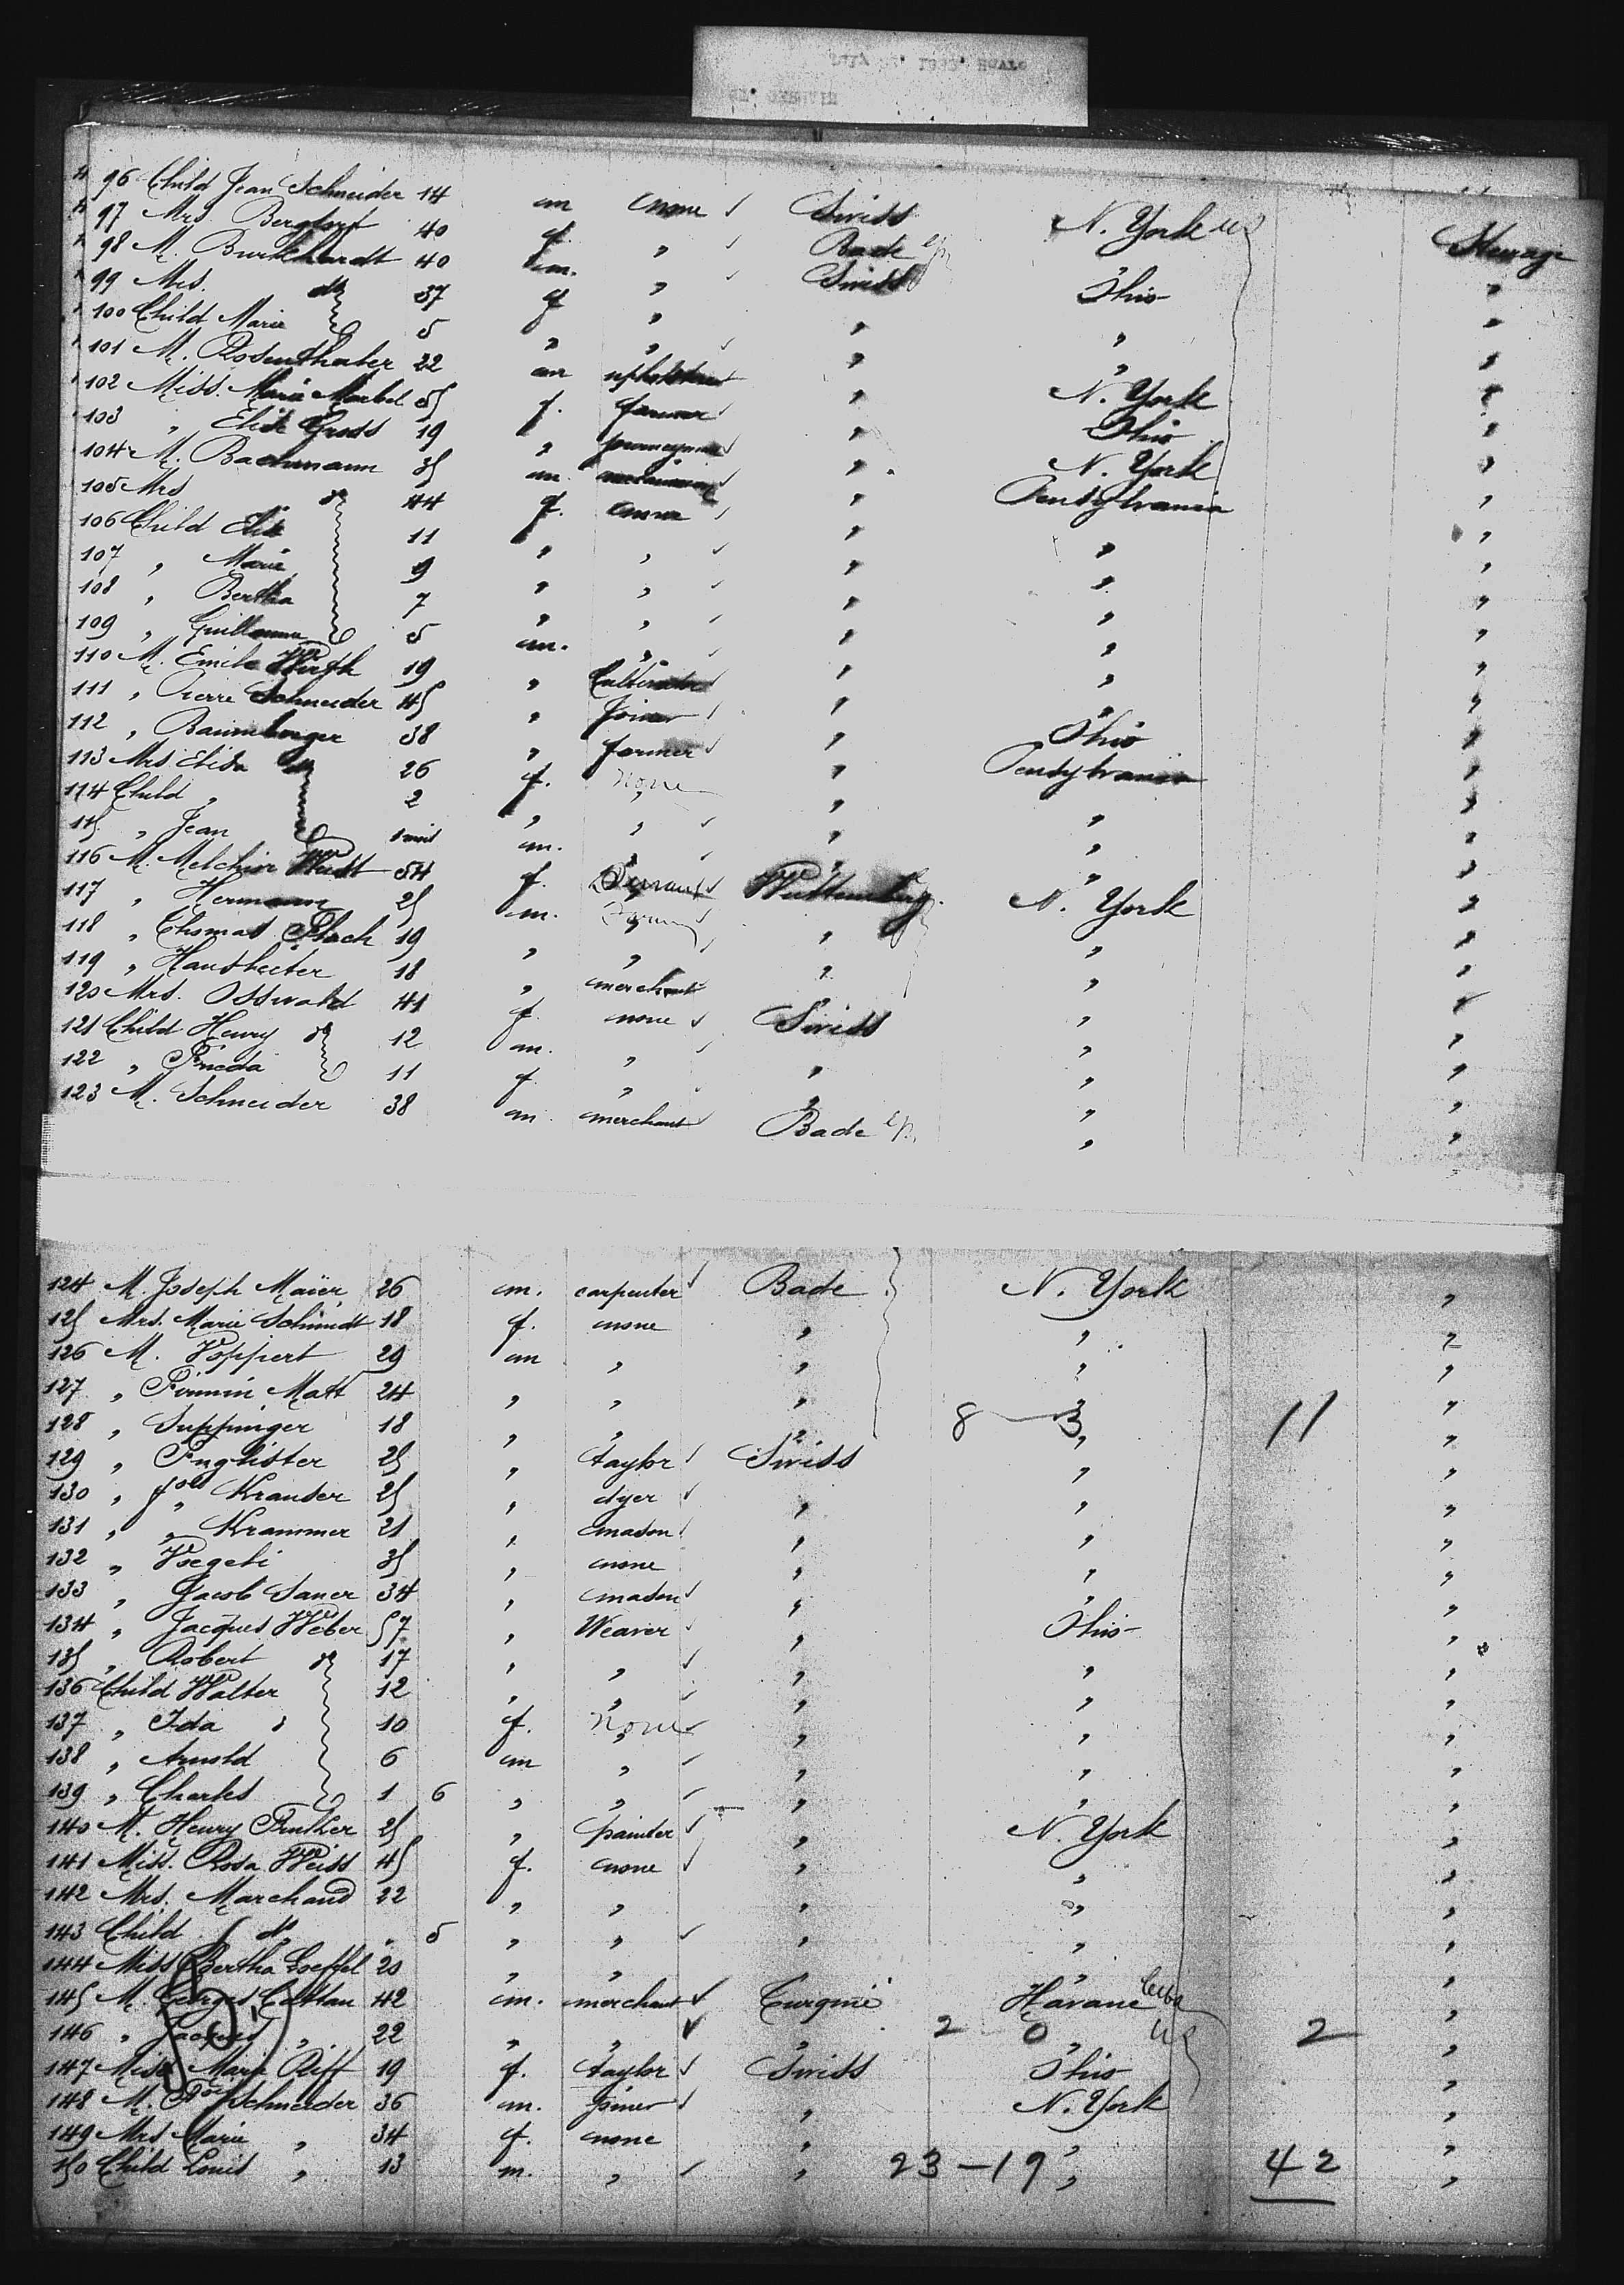 96 Child Jean Schneider 14 m none Swiss N. York US Steerage
97 Mrs. Bergdorf 40 f. " Bade "
98 M. Burkhardt 40 m. " Swiss Ohio "
99 Mrs. do 37 f " " " "
100 Child Marie 5 " " " " "
101 M. Rosenthaler 22 m upholsterer " N. York "
102 Miss. Marie Markel 35 f. farmer " Ohio "
103 " Elise Gross 19 " " N. York "
104 M. Bachmann 35 m. " Pensylvania "
105 Mrs do 44 f. none " " "
106 Child Elise 11 " " " " "
107 " Marie 9 " " " " "
108 " Bertha 7 " " " " "
109 " Guillaume 5 m. " " " "
110 M. Emile Wirth 19 " Cultivator " " "
111 " Pierre Schneider 45 " Joiner " Ohio "
112 " Baumberger 38 " farmer " Pensylvania "
113 Mrs Elisa do 26 f. none " " "
114 Child " 2 " " " " "
115 " Jean 1 m. " " " "
116 M. Melchior 54 f. Servant Wurttemberg N. York "
117 " Hermann 25 m. " " "
118 " Thomas Flach 19 " " " " "
119 " 18 " merchant " " "
120 Mrs. Osswald 41 f. none Swiss " "
121 Child Henry do 12 m. " " " "
122 " Frieda 11 f. " " " "
123 M. Schneider 38 m. merchant Bade " "
124 M. Joseph Maïer 26 m. carpenter Bade N. York "
125 Mrs. Marie Schmidt 18 f. none " " "
126 M. Poppert 29 m " " " "
127 " Firmin Matt 24 " " " " "
128 " Suppinger 18 " " " 8 — 3 " 11 "
129 " Englister 25 " taylor Swiss " "
130 " Jos Krauser 25 " dyer " " "
131 " " Krammer 21 " mason " " "
132 " Voegeli 35 " none " " "
133 " Jacob Saner 34 " mason " " "
134 " Jacques Weber 57 " Weaver " Ohio "
135 " Robert do 17 " " " " "
136 Child Walter 12 " " " " "
137 " Ida 10 f. none " " "
138 " Arnold 6 m " " " "
139 " Charles 1 6 " " " " "
140 M. Henry 25 " painter " N. York "
141 Miss. Rosa Weiss 45 f. none " " "
142 Mrs. Marchand 22 " " " " "
143 Child do " 5 " " " " "
144 Miss Bertha Loeffel 20 " " " " "
145 M. Georges Cattan 42 m. merchant Turquie Havane Cuba "
146 " Jacques " 22 " " " 2 0 " US 2 "
147 Miss Marie Riff 19 f. taylor Swiss Ohio "
148 M. Schneider 36 m. joiner " N. York "
149 Mrs Marie " 34 f. none " " "
150 Child Louis " 13 m. " " 23 - 19 " 42 "